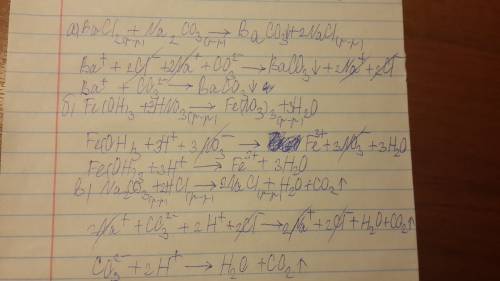 а) BaCl₂(р-р) + Na₂CO₃(р-р) → BaCO₃↓ + 2NaCl(р-р)
Ba⁺ + 2Cl⁻ + 2Na⁺ + CO²⁻ → BaCO₃↓ + 2Na⁺ + 2Cl⁻
Ba⁺ + CO₃²⁻ → BaCO₃↓
б) Fe(OH)₃ + 3HNO₃(р-р) → Fe(NO₃)₃(р-р) + 3H₂O
Fe(OH)₃ + 3H⁺ + 3NO₃⁻ → Fe³⁺ + 3NO₃⁻ + 3H₂O
Fe(OH)₃ + 3H⁺ → Fe³⁺ + 3H₂O
в) Na₂CO₃(р-р) + 2HCl(р-р) → 2NaCl(р-р) + H₂O + CO₂↑
2Na⁺ + CO₃²⁻ + 2H⁺ + 2Cl⁻ → 2Na⁺ + 2Cl⁻ + H₂O + CO₂↑
CO₃²⁻ + 2H⁺ → H₂O + CO₂↑